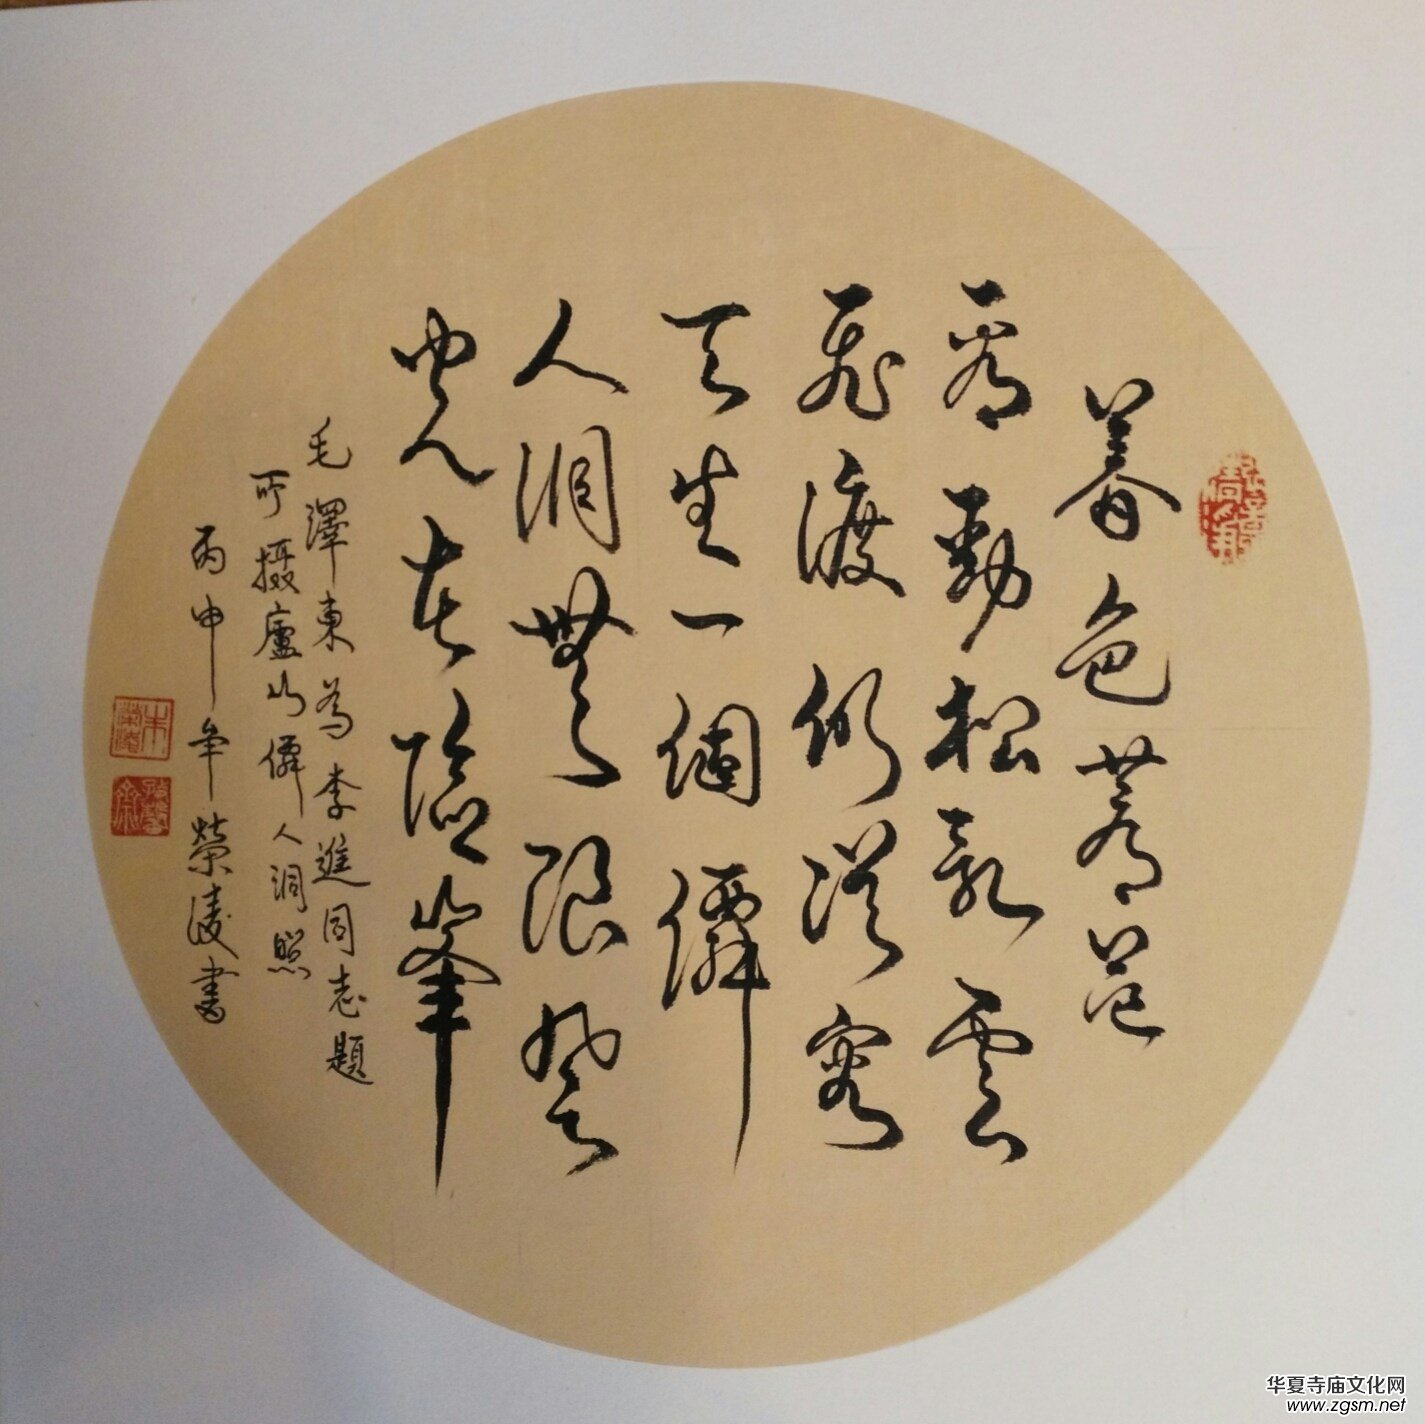 暮色蒼茫
看勁松亂雲
飛渡仍從容
天生一個僊
人洞無限風
光在險峯
毛澤東為李進同志題
所攝廬山僊人洞照
丙申年榮書
华夏寺庙文化网
www.zgsm.net